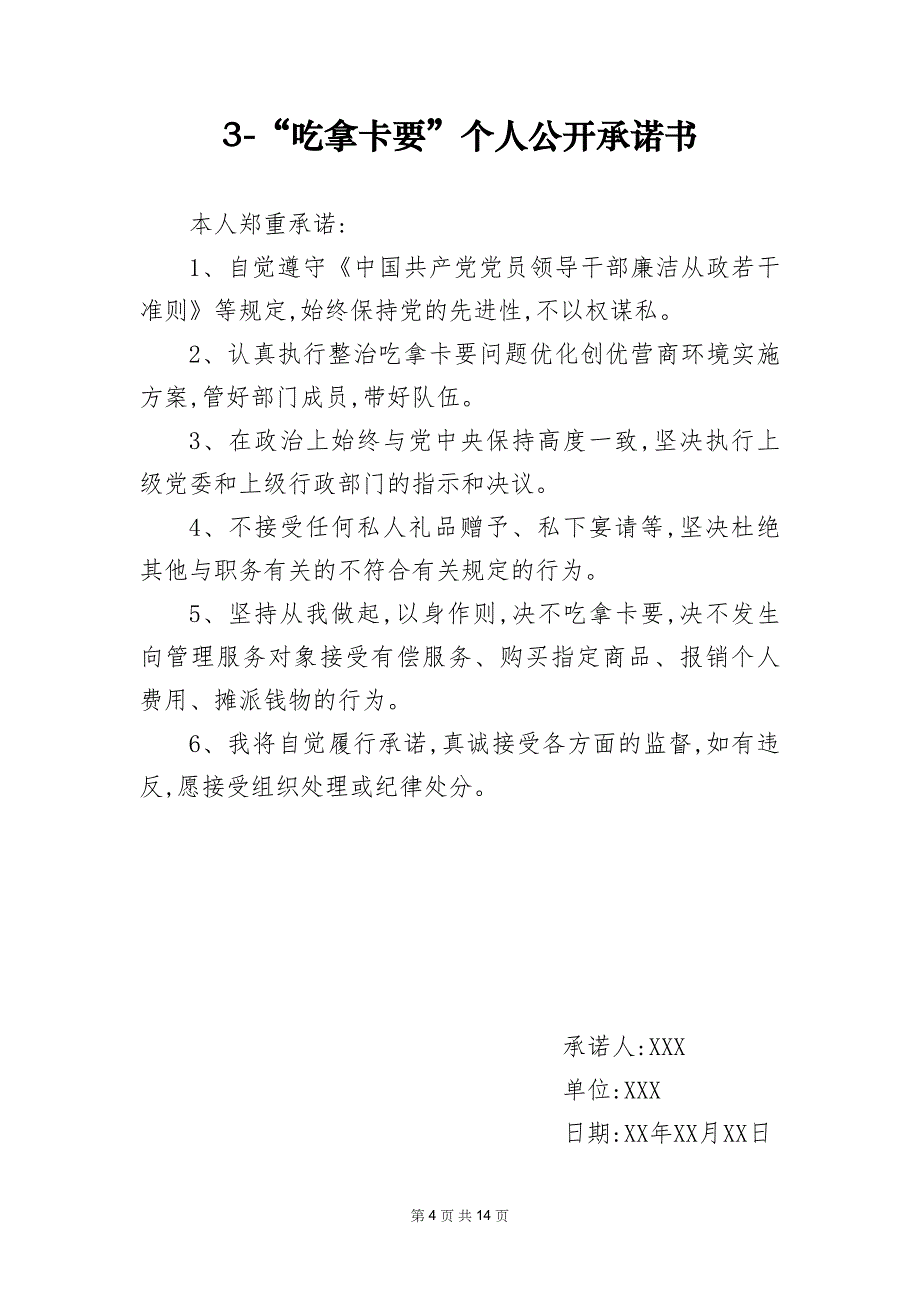 3-“吃拿卡要”个人公开承诺书
本人郑重承诺:
1、自觉遵守《中国共产党党员领导干部廉洁从政若干
准则》等规定,始终保持党的先进性,不以权谋私。
2、认真执行整治吃拿卡要问题优化创优营商环境实施
方案,管好部门成员,带好队伍。
3、在政治上始终与党中央保持高度一致,坚决执行上
级党委和上级行政部门的指示和决议。
4、不接受任何私人礼品赠予、私下宴请等,坚决杜绝
其他与职务有关的不符合有关规定的行为。
5、坚持从我做起,以身作则,决不吃拿卡要,决不发生
向管理服务对象接受有偿服务、购买指定商品、报销个人
费用、摊派钱物的行为。
6、我将自觉履行承诺,真诚接受各方面的监督,如有违
反,愿接受组织处理或纪律处分。
承诺人:XXX
单位:XXX
日期:XX年XX月XX日
第 4 页 共 14 页